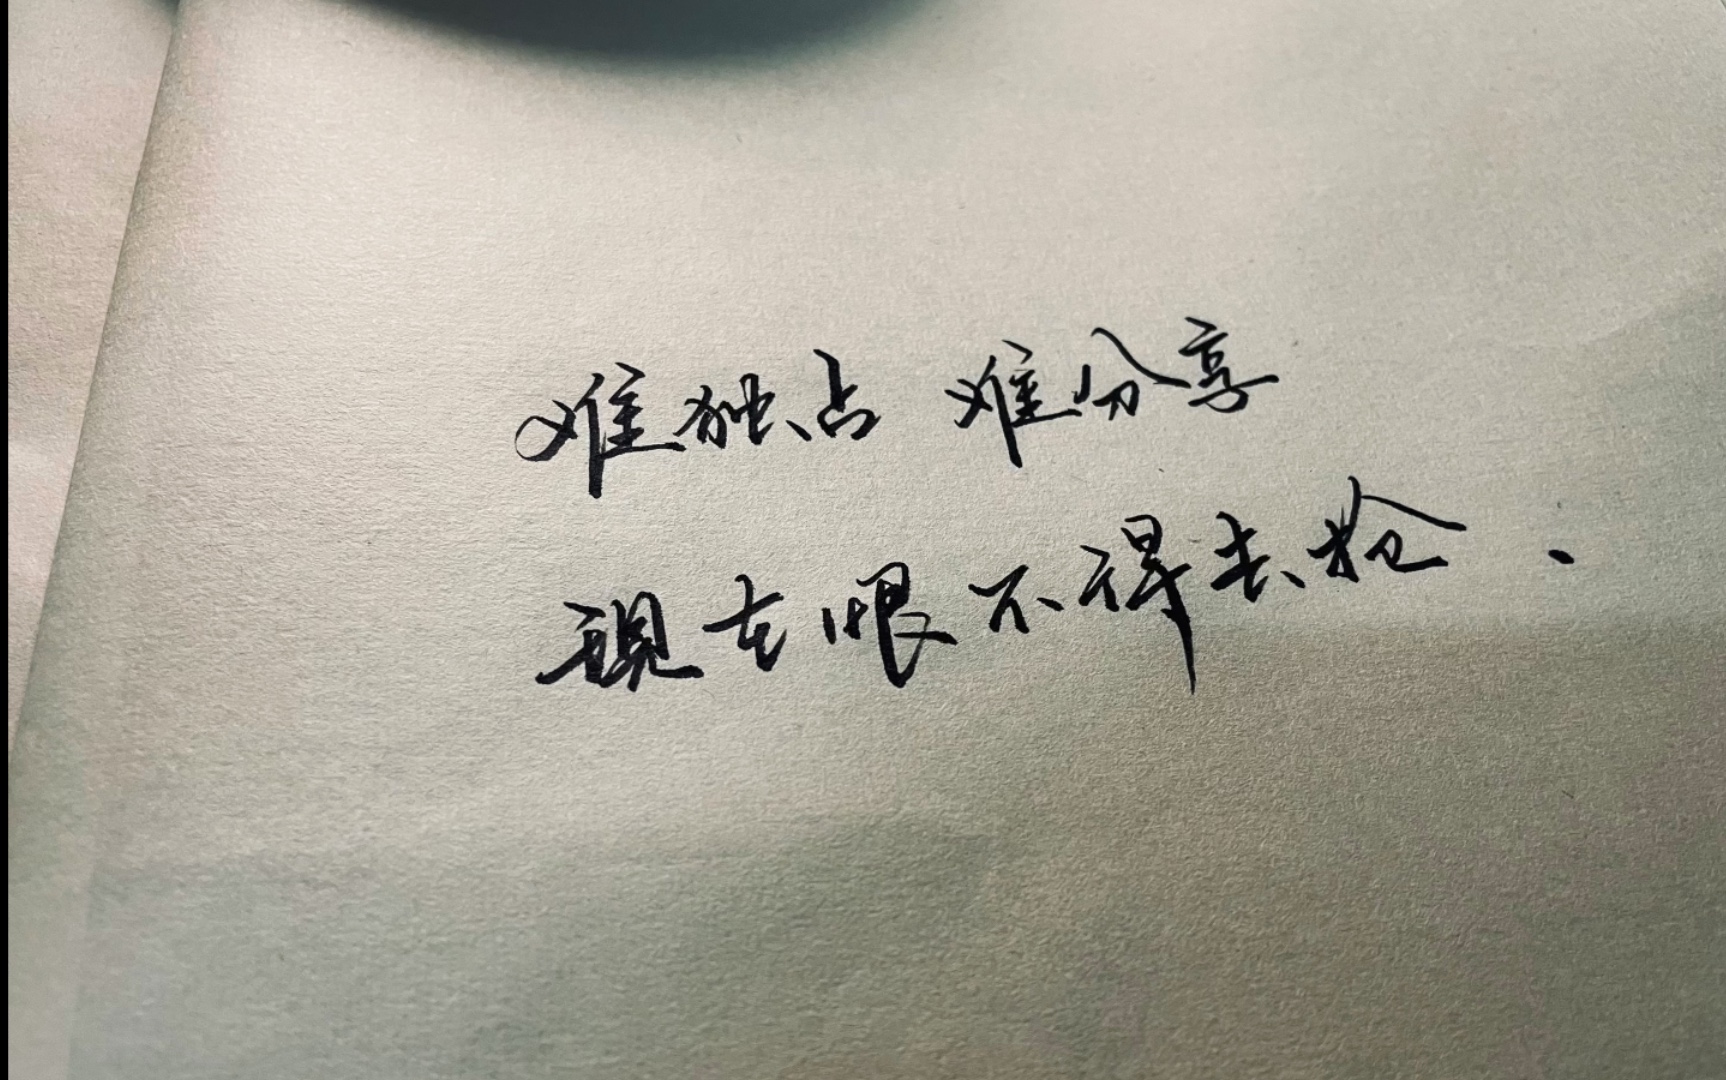 难独占 难分享
现在恨不得去抢、